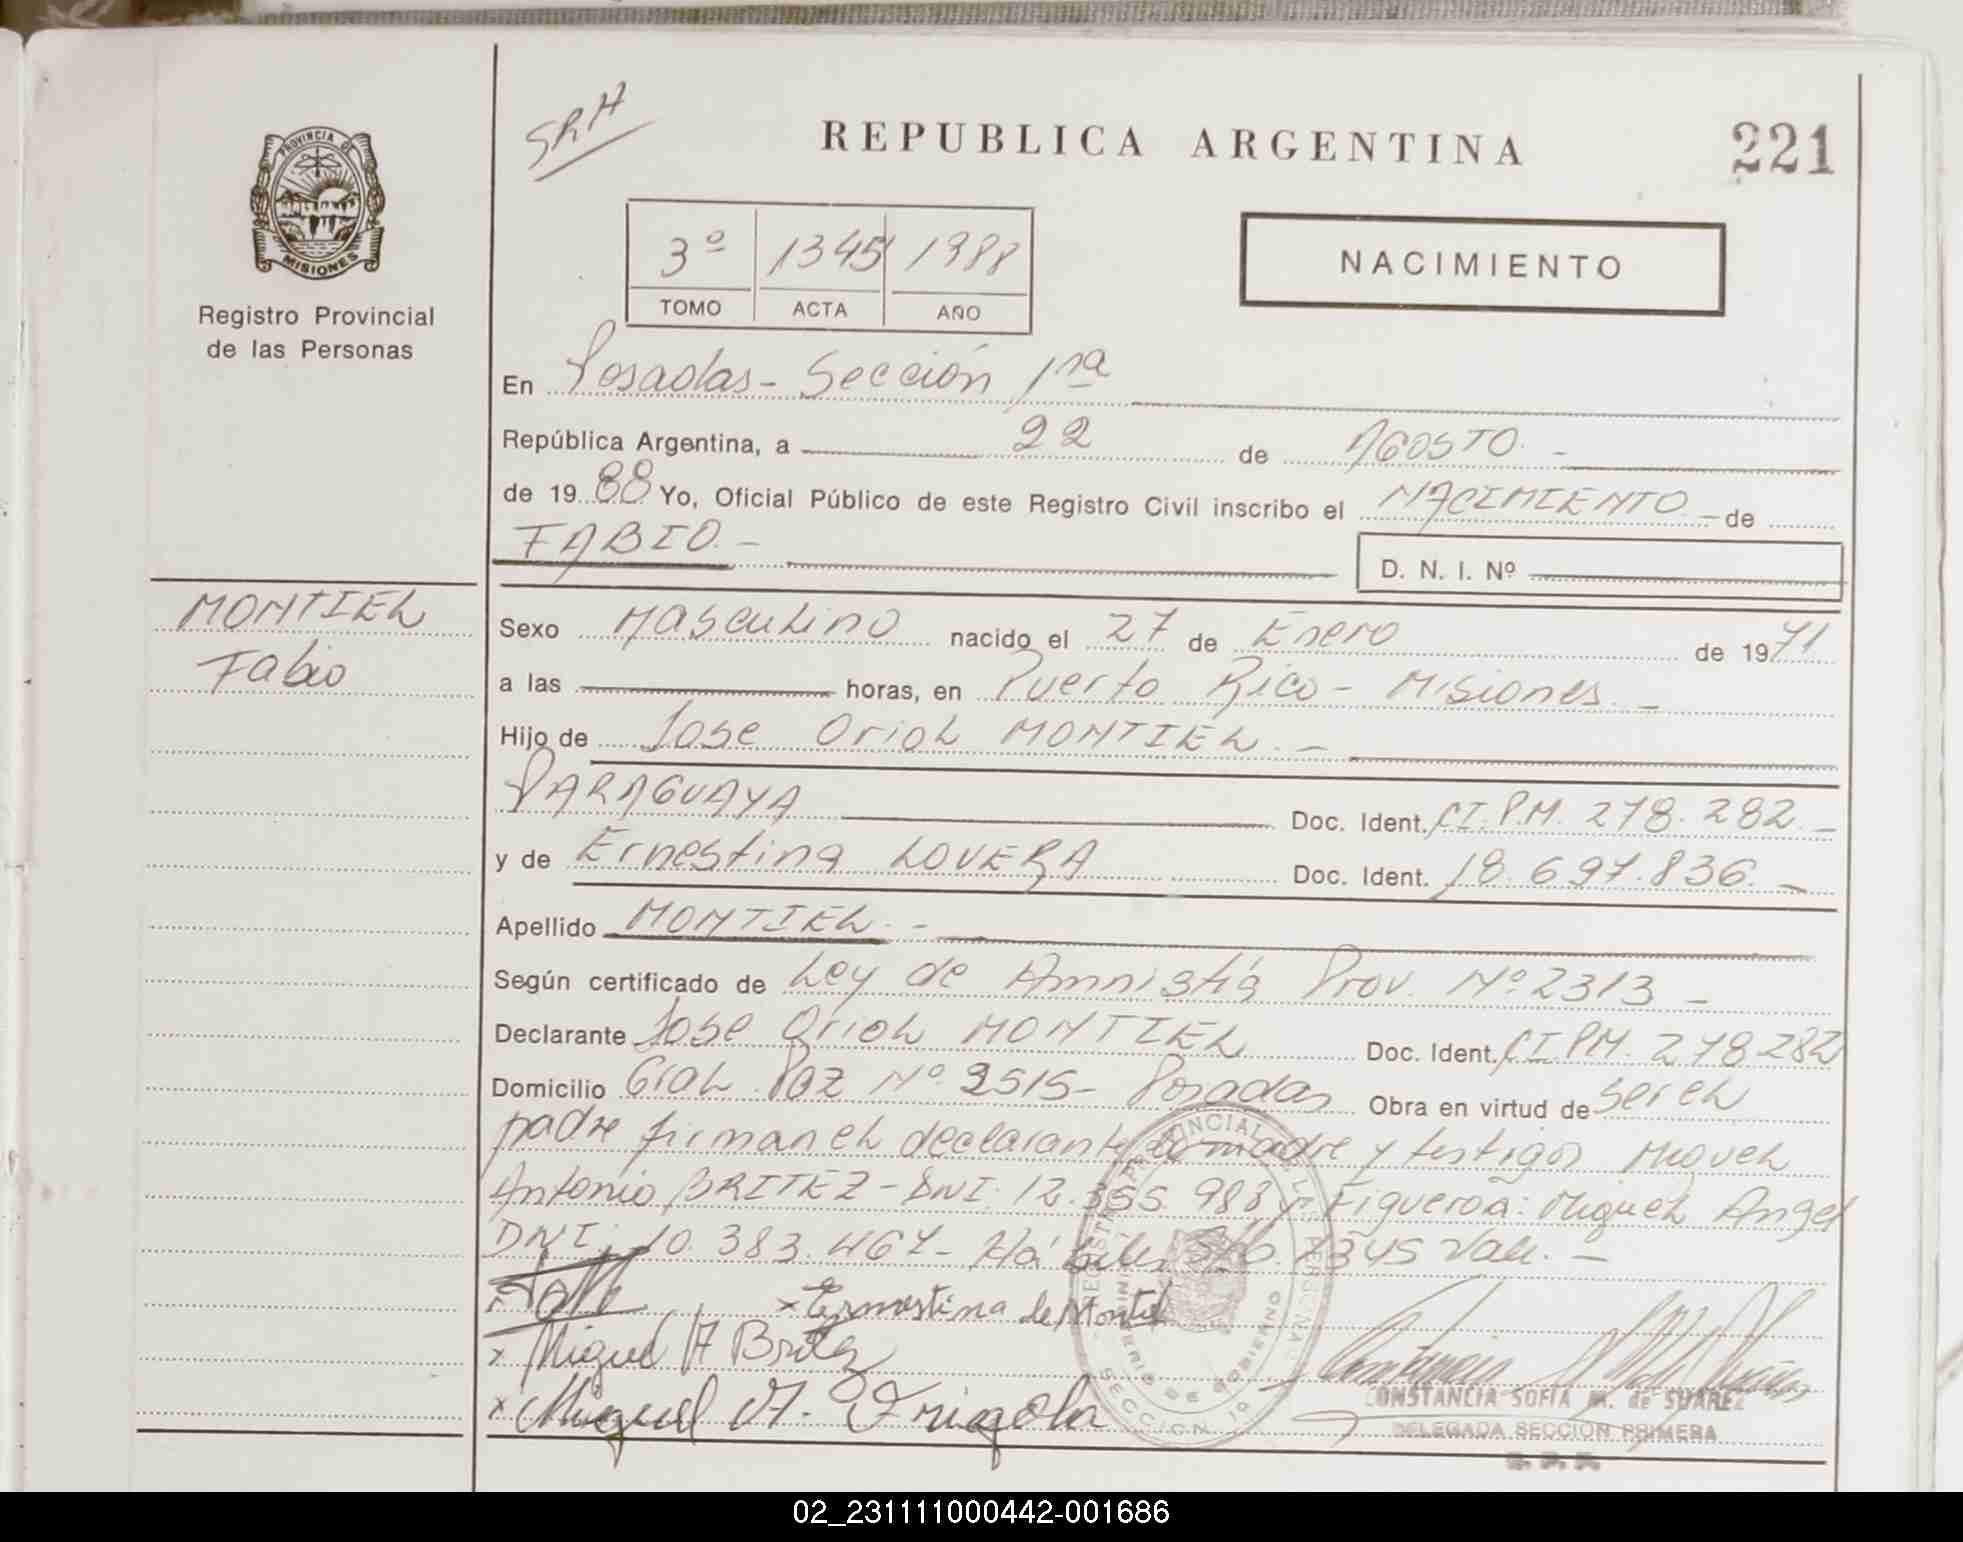 SRH
REPUBLICA ARGENTINA
221
PROVINCIA DE
MISIONES
Registro Provincial
de las Personas
3º 1345 1988
TOMO ACTA AÑO
NACIMIENTO
En Posadas - Sección 1ra
República Argentina, a 22 de AGOSTO. -
de 1988 Yo, Oficial Público de este Registro Civil inscribo el NACIMIENTO - de
FABIO. -
D. N. I. Nº
MONTIEL
Fabio
Sexo Masculino nacido el 27 de Enero de 1971
a las horas, en Puerto Rico - Misiones. -
Hijo de Jose Oriol MONTIEL. -
PARAGUAYA Doc. Ident. CI. P.M. 278.282. -
y de Ernestina LOVERA Doc. Ident. 18.697.836. -
Apellido MONTIEL. -
Según certificado de Ley de Amnistía Prov. Nº 2313 -
Declarante Jose Oriol MONTIEL Doc. Ident. CI. PM. 278.282
Domicilio Gral. Paz Nº 2515 - Posadas Obra en virtud de ser el
padre firman el declarante la madre y testigos Miguel
Antonio BRITEZ - DNI. 12.355.983 y Figueroa: Miguel Angel
DNI: 10.383.467 - Hábiles S/b. 1345 Vale. -
x Ernestina de Montiel
x Miguel A Britez
x Miguel A.
REGISTRO PROVINCIAL DE LAS PERSONAS
MINISTERIO DE GOBIERNO
SECCION 1º
CONSTANCIA SOFIA M. de SUAREZ
DELEGADA SECCION PRIMERA
02_231111000442-001686